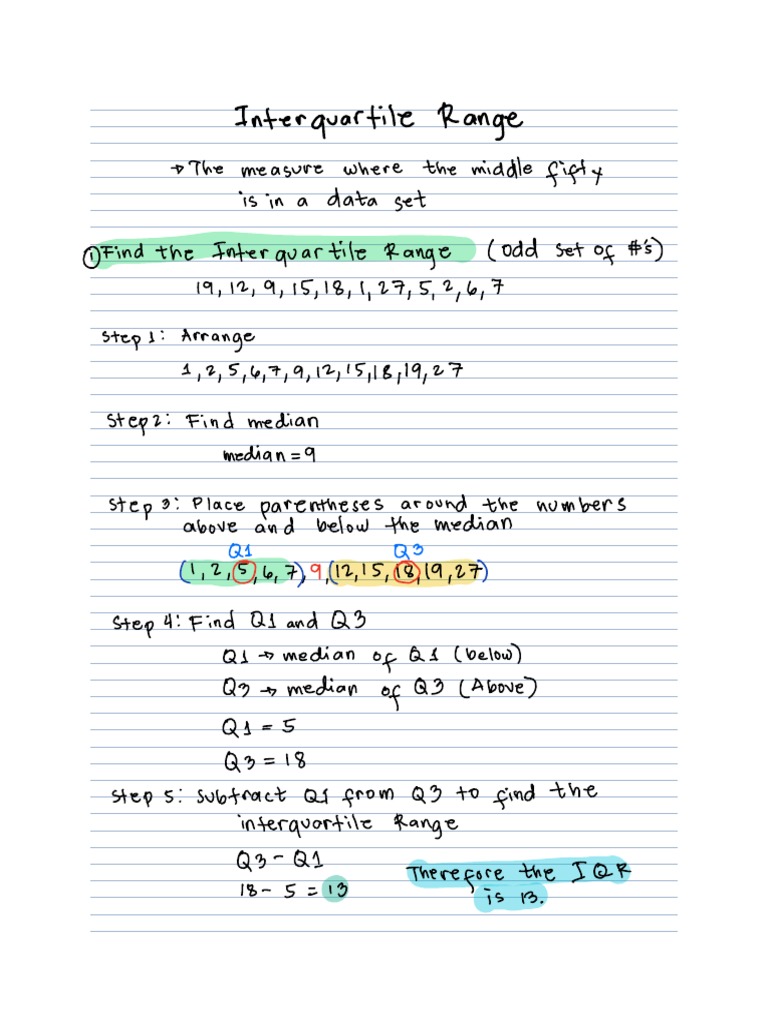 Interquartile Range
→ The measure where the middle fifty
is in a data set
① Find the Interquartile Range (odd set of #'s)
19, 12, 9, 15, 18, 1, 27, 5, 2, 6, 7
Step 1: Arrange
1, 2, 5, 6, 7, 9, 12, 15, 18, 19, 27
Step 2: Find median
median = 9
Step 3: Place parentheses around the numbers
above and below the median
Q1 Q3
(1, 2, 5, 6, 7), 9, (12, 15, 18, 19, 27)
Step 4: Find Q1 and Q3
Q1 → median of Q1 (below)
Q3 → median of Q3 (Above)
Q1 = 5
Q3 = 18
Step 5: Subtract Q1 from Q3 to find the
interquartile Range
Q3 - Q1
18 - 5 = 13
Therefore the IQR
is 13.